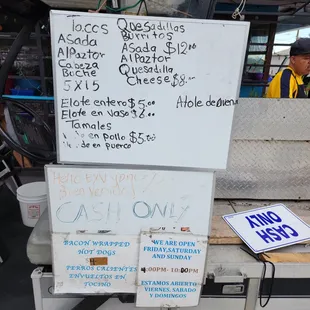 Tacos
Asada
AlPaztor
Cabeza
Buche
5 x 15
Quesadillas
Burritos
Asada $12.00
AlPaztor
Quesadilla
Cheese $8.00
Elote entero $5.00
Elote en vaso $6.00
Tamales
en pollo $5.00
de en puerco
Atole de
CASH ONLY
BACON WRAPPED
HOT DOGS
PERROS CALIENTES
ENVUELTOS EN
TOCINO
WE ARE OPEN
FRIDAY, SATURDAY
AND SUNDAY
4:00PM - 10:00PM
ESTAMOS ABIERTO
VIERNES, SABADO
Y DOMINGOS
CASH ONLY